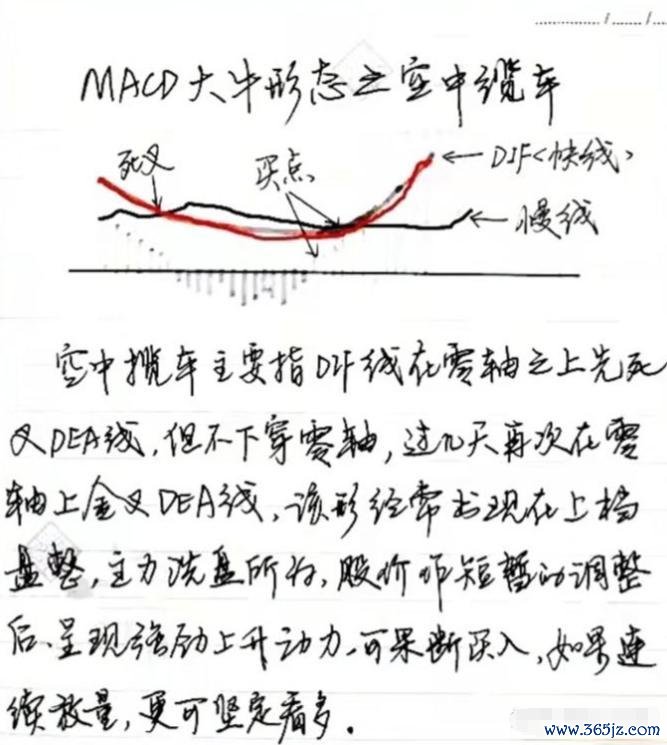 MACD大牛形态之空中缆车
死叉
买点
DIF<快线>
慢线
空中揽车主要指DIF线在零轴之上先死
叉DEA线,但不下穿零轴,过几天再次在零
轴上金叉DEA线,该形经常出现在上档
盘整,主力洗盘所为,股价作短暂的调整
后、呈现强劲上升动力,可果断买入,如果连
续放量,更可坚定看多。
www.365jz.com